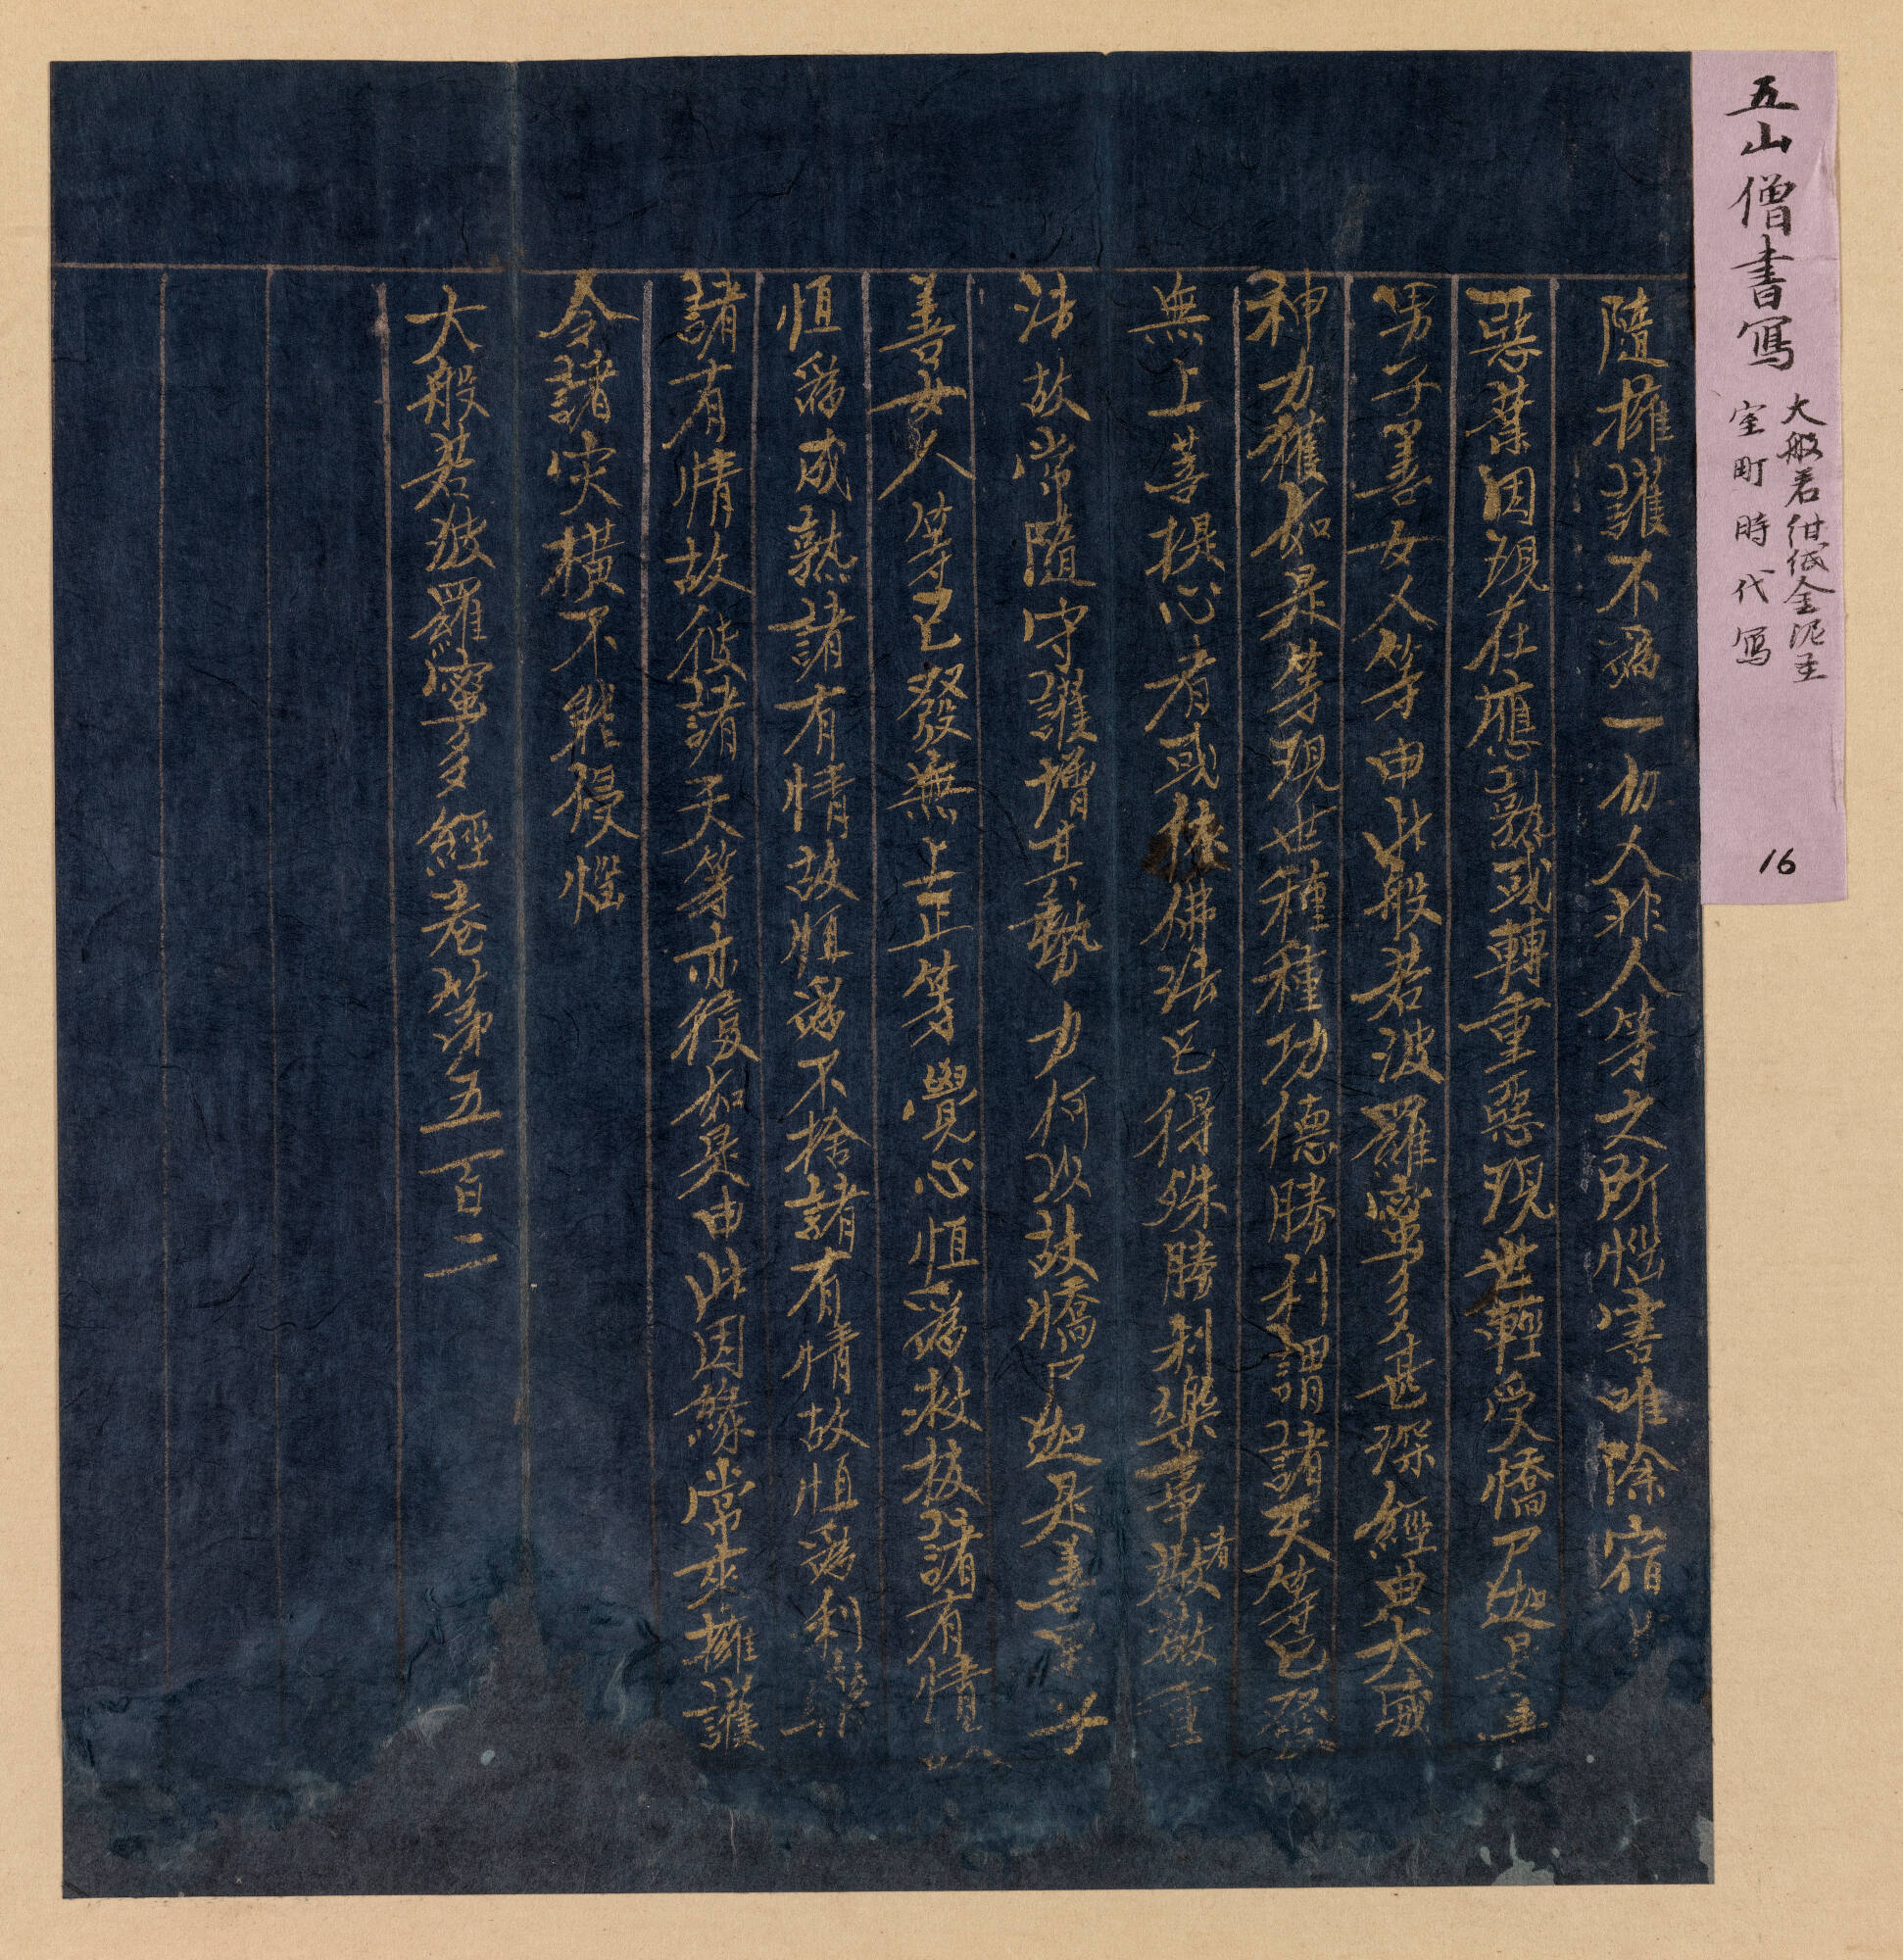 五山僧書写
大般若紺紙金泥圣
室町時代写
16
隨擁護不爲一切人非人等之所惱害唯除宿
惡業因現在應熟或轉重惡現世輕受憍尸迦是
男子善女人等由此般若波羅蜜多甚深經典大威
神力獲如是等現世種種功德勝利謂諸天等已發
無上菩提心者或依佛法已得殊勝利樂事者敬重
法故常隨守護增其勢力何以故憍尸迦是善男子
善女人等已發無上正等覺心恒爲救拔諸有情
恒爲成熟諸有情故恒爲不捨諸有情故恒爲利樂
諸有情故彼諸天等亦復如是由此因緣常來擁護
令諸灾橫不能侵惱
大般若波羅蜜多經卷第五百二